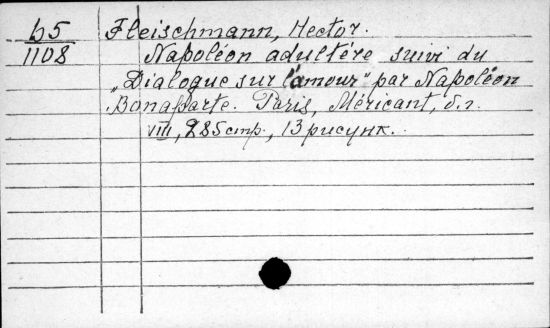 Б5 Fleischmann, Hector.
1108 Napoléon adultére suivi du
„Dialogue sur l'amour" par Napoléon
Bonaparte. Paris, Méricant, б.г.
VIII, 285 стр., 13 рисунк.